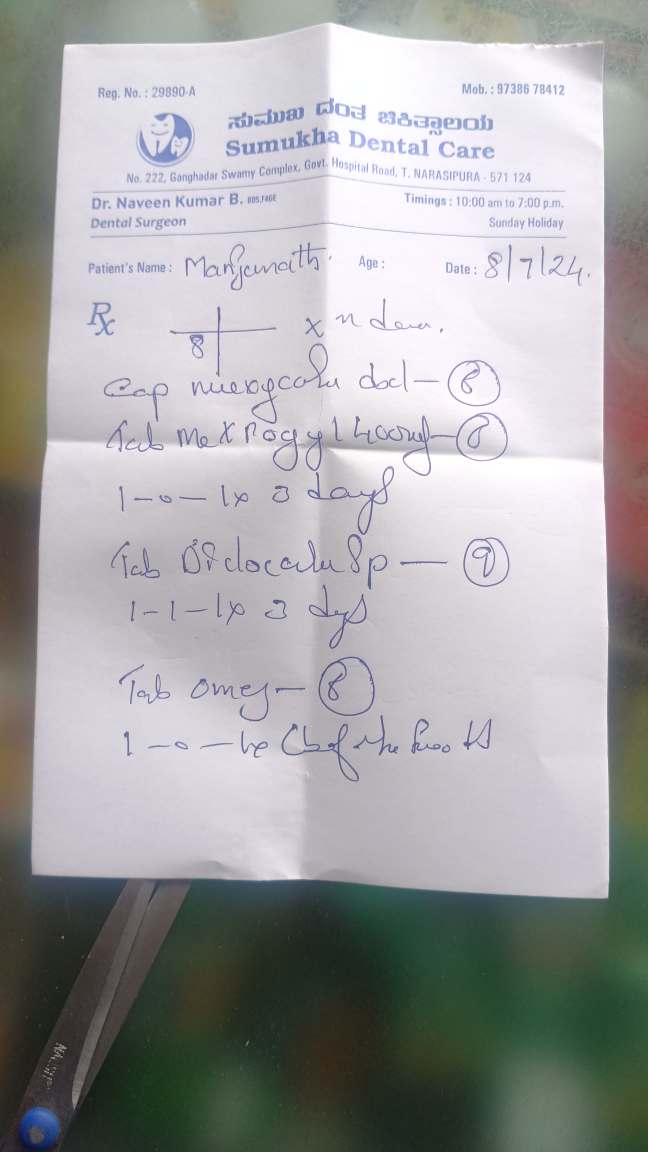 Reg. No. : 29890-A
Mob. : 97386 78412
ಸುಮುಖ ದಂತ ಚಿಕಿತ್ಸಾಲಯ
Sumukha Dental Care
No. 222, Ganghadar Swamy Complex, Govt. Hospital Road, T. NARASIPURA - 571 124
Dr. Naveen Kumar B. BDS,FAGE
Timings : 10:00 am to 7:00 p.m.
Dental Surgeon
Sunday Holiday
Patient's Name : Manjunath. Age : Date : 8/7/24.
Rx 8 x
Cap — 8
Tab Metrogyl 400mg — 8
1-0-1 x 3 days
Tab Sp — 9
1-1-1 x 3 dys
Tab omez — 8
1-0-1